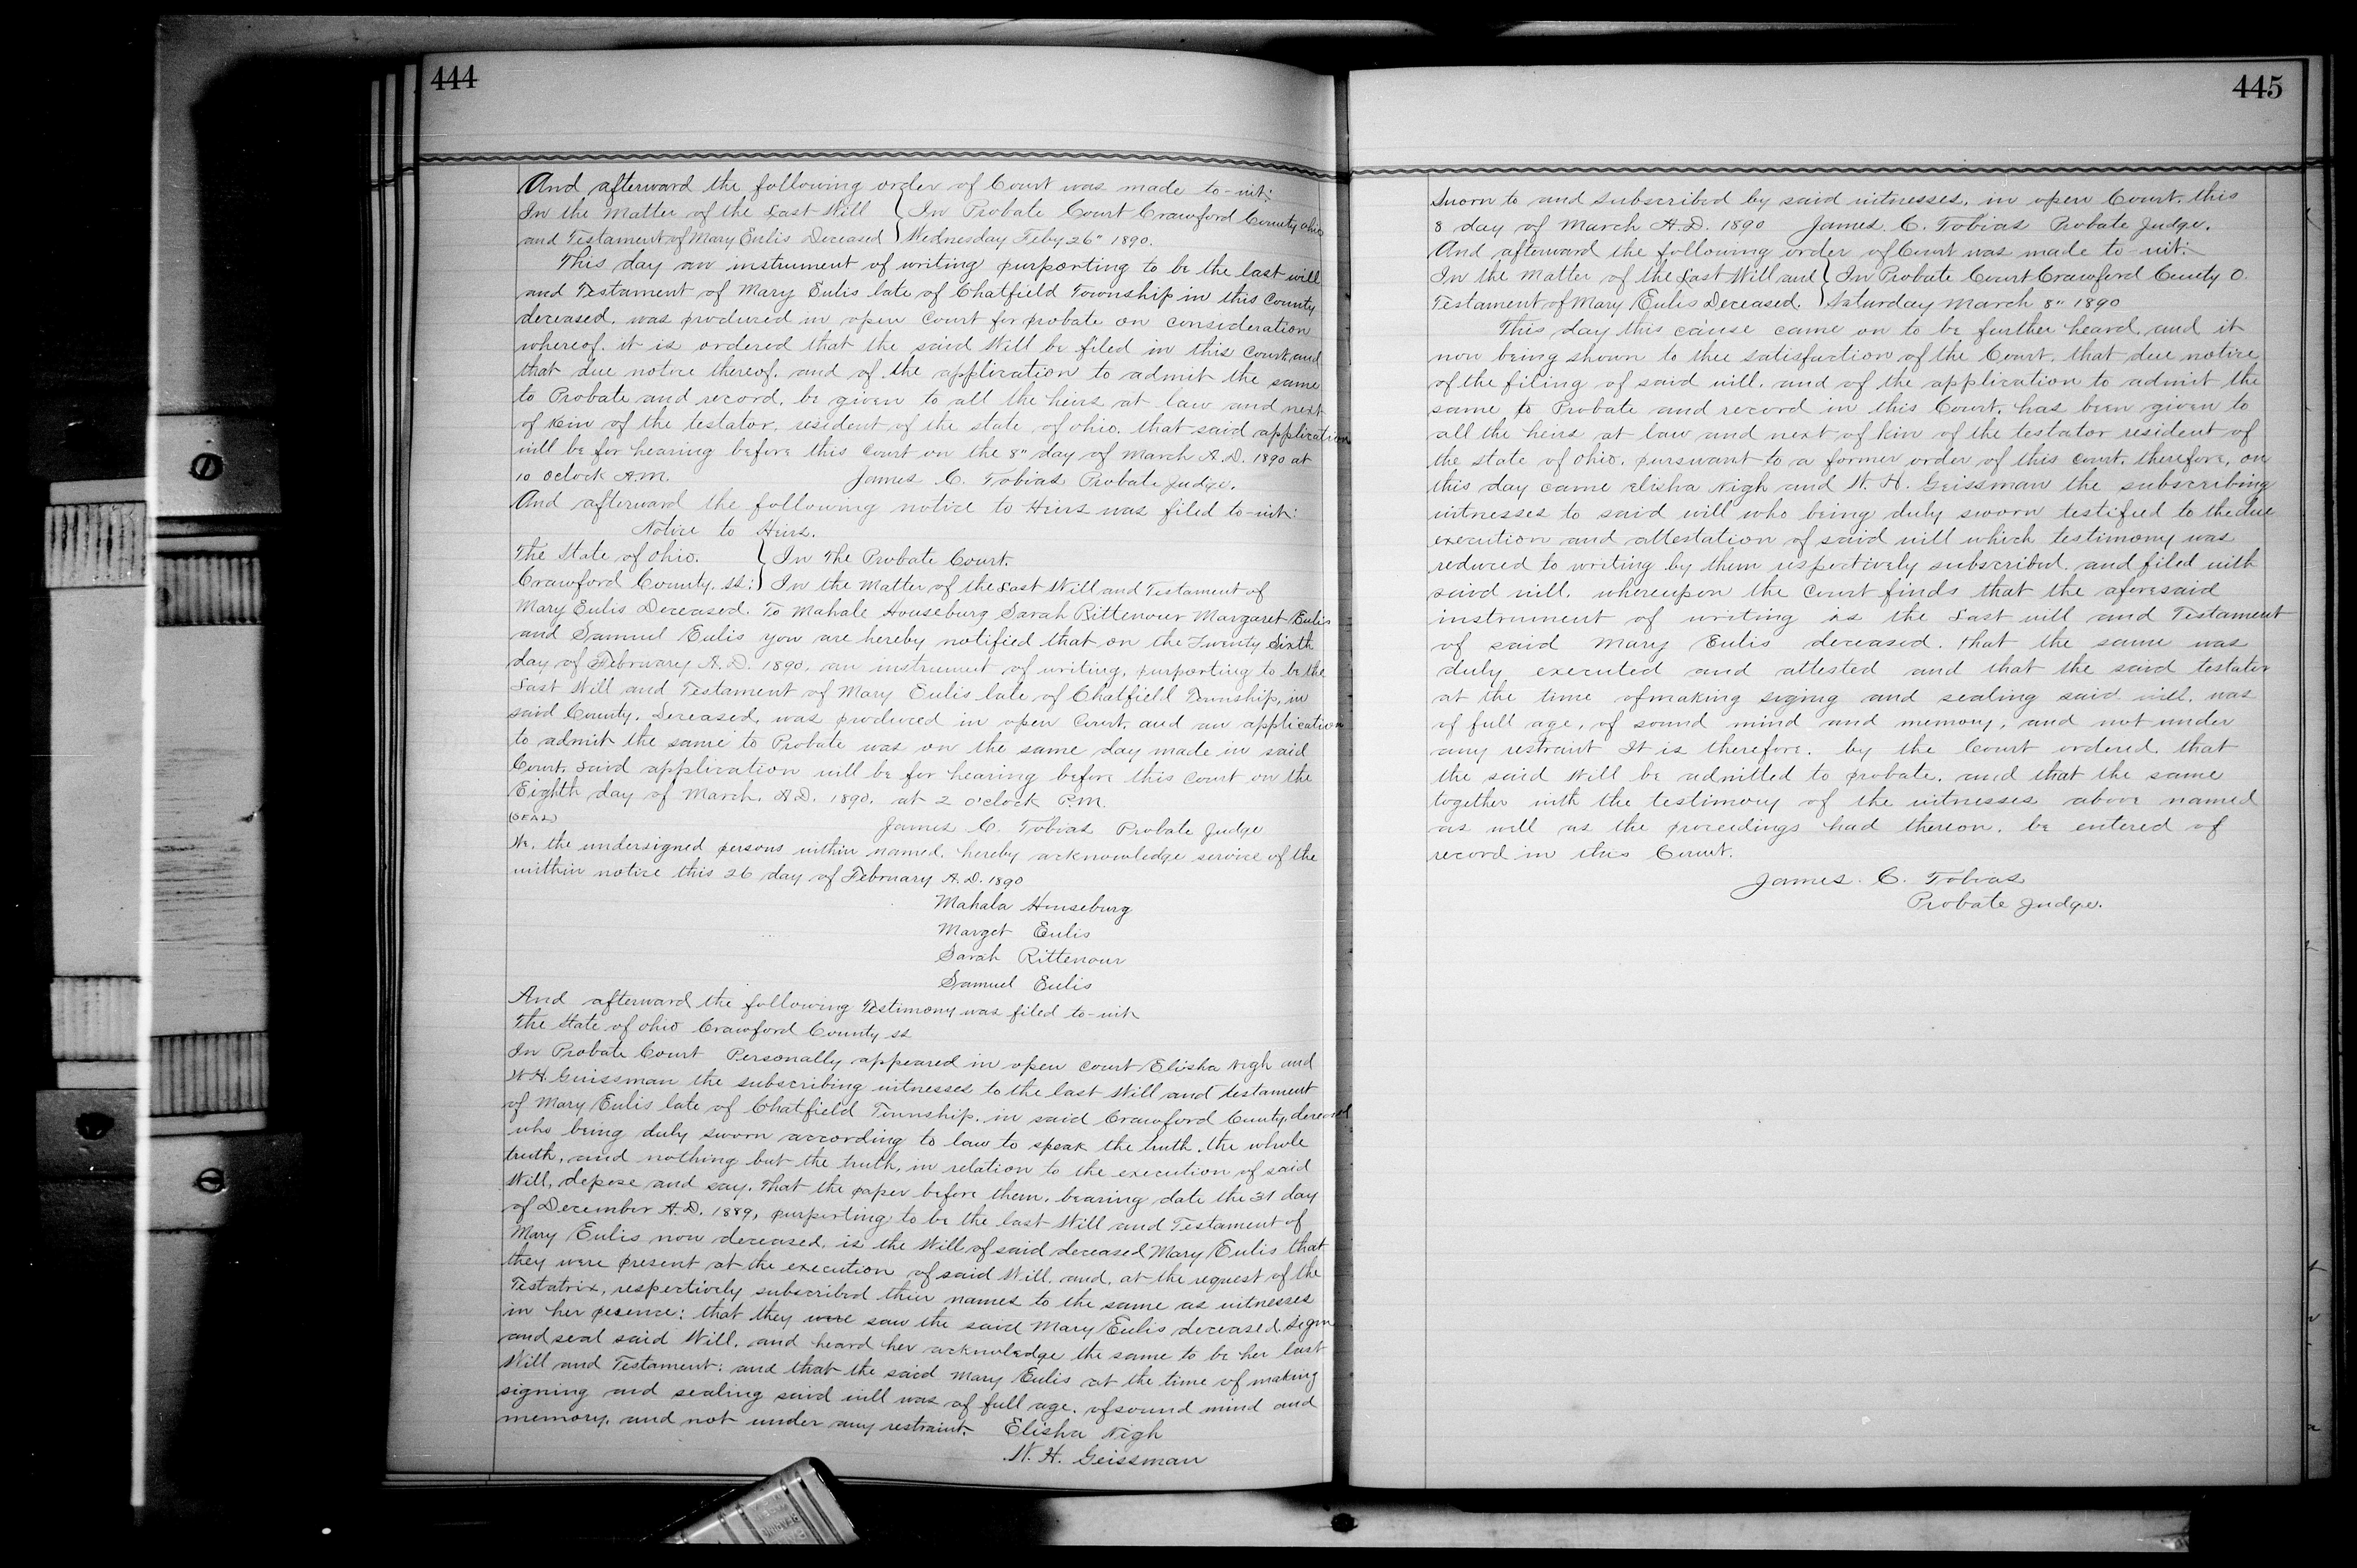 444
And afterward the following order of Court was made to-wit:
In the Matter of the Last Will } In Probate Court Crawford County Ohio
and Testament of Mary Eulis Deceased } Wednesday Feby 26" 1890.
This day an instrument of writing purporting to be the last will
and Testament of Mary Eulis late of Chatfield Township in this County
deceased, was produced in open Court for probate on consideration
whereof. it is ordered that the said Will be filed in this Court, and
that due notice thereof. and of the application to admit the same
to Probate and record, be given to all the heirs at law and next
of Kin of the testator, resident of the state of Ohio. that said application
will be for hearing before this Court on the 8" day of March A.D. 1890 at
10 Oclock A.M. James C. Tobias Probate Judge.
And afterward the following notice to Heirs was filed to-wit:
Notice to Heirs.
The State of Ohio. } In The Probate Court.
Crawford County. ss: } In the Matter of the Last Will and Testament of
Mary Eulis Deceased. To Mahale Houseburg Sarah Rittenour Margaret Eulis
and Samuel Eulis you are hereby notified that on the Twenty Sixth
day of February A.D. 1890, an instrument of writing, purporting to be the
Last Will and Testament of Mary Eulis late of Chatfield Township, in
said County. Deceased, was produced in open Court, and an application
to admit the same to Probate was on the same day made in said
Court. Said application will be for hearing before this Court on the
Eighth day of March. A.D. 1890. at 2 o'clock P.M.
(SEAL)
James C. Tobias Probate Judge
We, the undersigned persons within named, hereby acknowledge service of the
within notice this 26 day of February A.D. 1890
Mahala Houseburg
Marget Eulis
Sarah Rittenour
Samuel Eulis
And afterward the following Testimony was filed to-wit
The State of Ohio Crawford County ss
In Probate Court Personally appeared in open Court Elisha Nigh and
W H Geissman the subscribing witnesses to the last Will and testament
of Mary Eulis late of Chatfield Township. in said Crawford County, deceased
who being duly sworn according to law to speak the truth, the whole
truth, and nothing but the truth, in relation to the execution of said
Will, depose and say, That the paper before them, bearing date the 31 day
of December A.D. 1889, purporting to be the last Will and Testament of
Mary Eulis now deceased, is the Will of said deceased Mary Eulis that
they were present at the execution of said Will, and, at the request of the
Testatrix, respectively subscribed their names to the same as witnesses
in her presence: that they were saw the said Mary Eulis deceased, sign
and seal said Will, and heard her acknowledge the same to be her last
Will and Testament: and that the said Mary Eulis at the time of making
signing and sealing said will was of full age, of sound mind and
memory, and not under any restraint. Elisha Nigh
W. H. Geissman
445
Sworn to and subscribed by said witnesses, in open Court, this
8 day of March A.D. 1890 James. C. Tobias Probate Judge.
And afterward the following order of Court was made to-wit:
In the Matter of the Last Will and } In Probate Court Crawford County O.
Testament of Mary Eulis Deceased. } Saturday March 8" 1890
This day this cause came on to be further heard, and it
now being shown to thee satisfaction of the Court, that due notice
of the filing of said will, and of the application to admit the
same to Probate and record in this Court, has been given to
all the heirs at law and next of kin of the testator resident of
the state of Ohio. pursuant to a former order of this court, therefore, on
this day came Elisha Nigh and W. H. Geissman the subscribing
witnesses to said will who being duly sworn testified to the due
execution and attestation of said will which testimony was
reduced to writing by them respectively subscribed, and filed with
said will. whereupon the Court finds that the aforesaid
instrument of writing is the Last will and Testament
of said Mary Eulis deceased. that the same was
duly executed and attested and that the said testator
at the time of making signg and sealing said will, was
of full age, of sound mind and memory, and not under
any restraint It is therefore. by the Court ordered, that
the said Will be admitted to probate, and that the same
together with the testimony of the witnesses above named
as well as the proceedings had thereon, be entered of
record in this Court.
James. C. Tobias
Probate Judge.